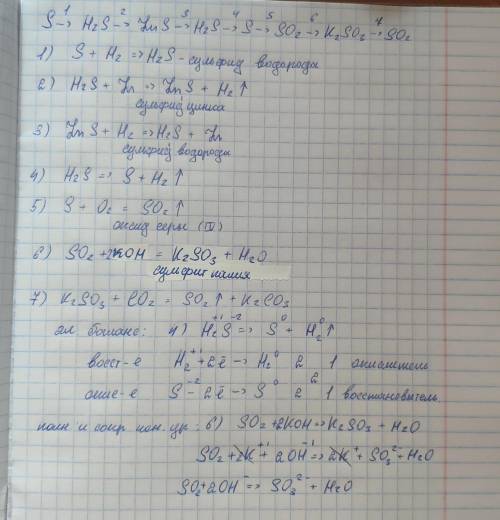 S →¹ H₂S →² ZnS →³ H₂S →⁴ S →⁵ SO₂ →⁶ K₂SO₃ →⁷ SO₂
1) S + H₂ => H₂S - сульфид водорода
2) H₂S + Zn => ZnS + H₂↑
сульфид цинка
3) ZnS + H₂ => H₂S + Zn
сульфид водорода
4) H₂S => S + H₂↑
5) S + O₂ = SO₂↑
оксид серы (IV)
6) SO₂ + 2KOH = K₂SO₃ + H₂O
сульфит калия
7) K₂SO₃ + CO₂ = SO₂↑ + K₂CO₃
эл. баланс: 4) H₂⁺¹S⁻² => S⁰ + H₂⁰↑
восст-е H₂⁺¹ + 2ē → H₂⁰ 2 1 окислитель
2
окис-е S⁻² - 2ē → S⁰ 2 1 восстановитель.
полн. и сокр. ион. ур.: 6) SO₂ + 2KOH => K₂SO₃ + H₂O
SO₂ + 2K⁺¹ + 2OH⁻¹ => 2K⁺ + SO₃²⁻ + H₂O
SO₂ + 2OH⁻ => SO₃²⁻ + H₂O